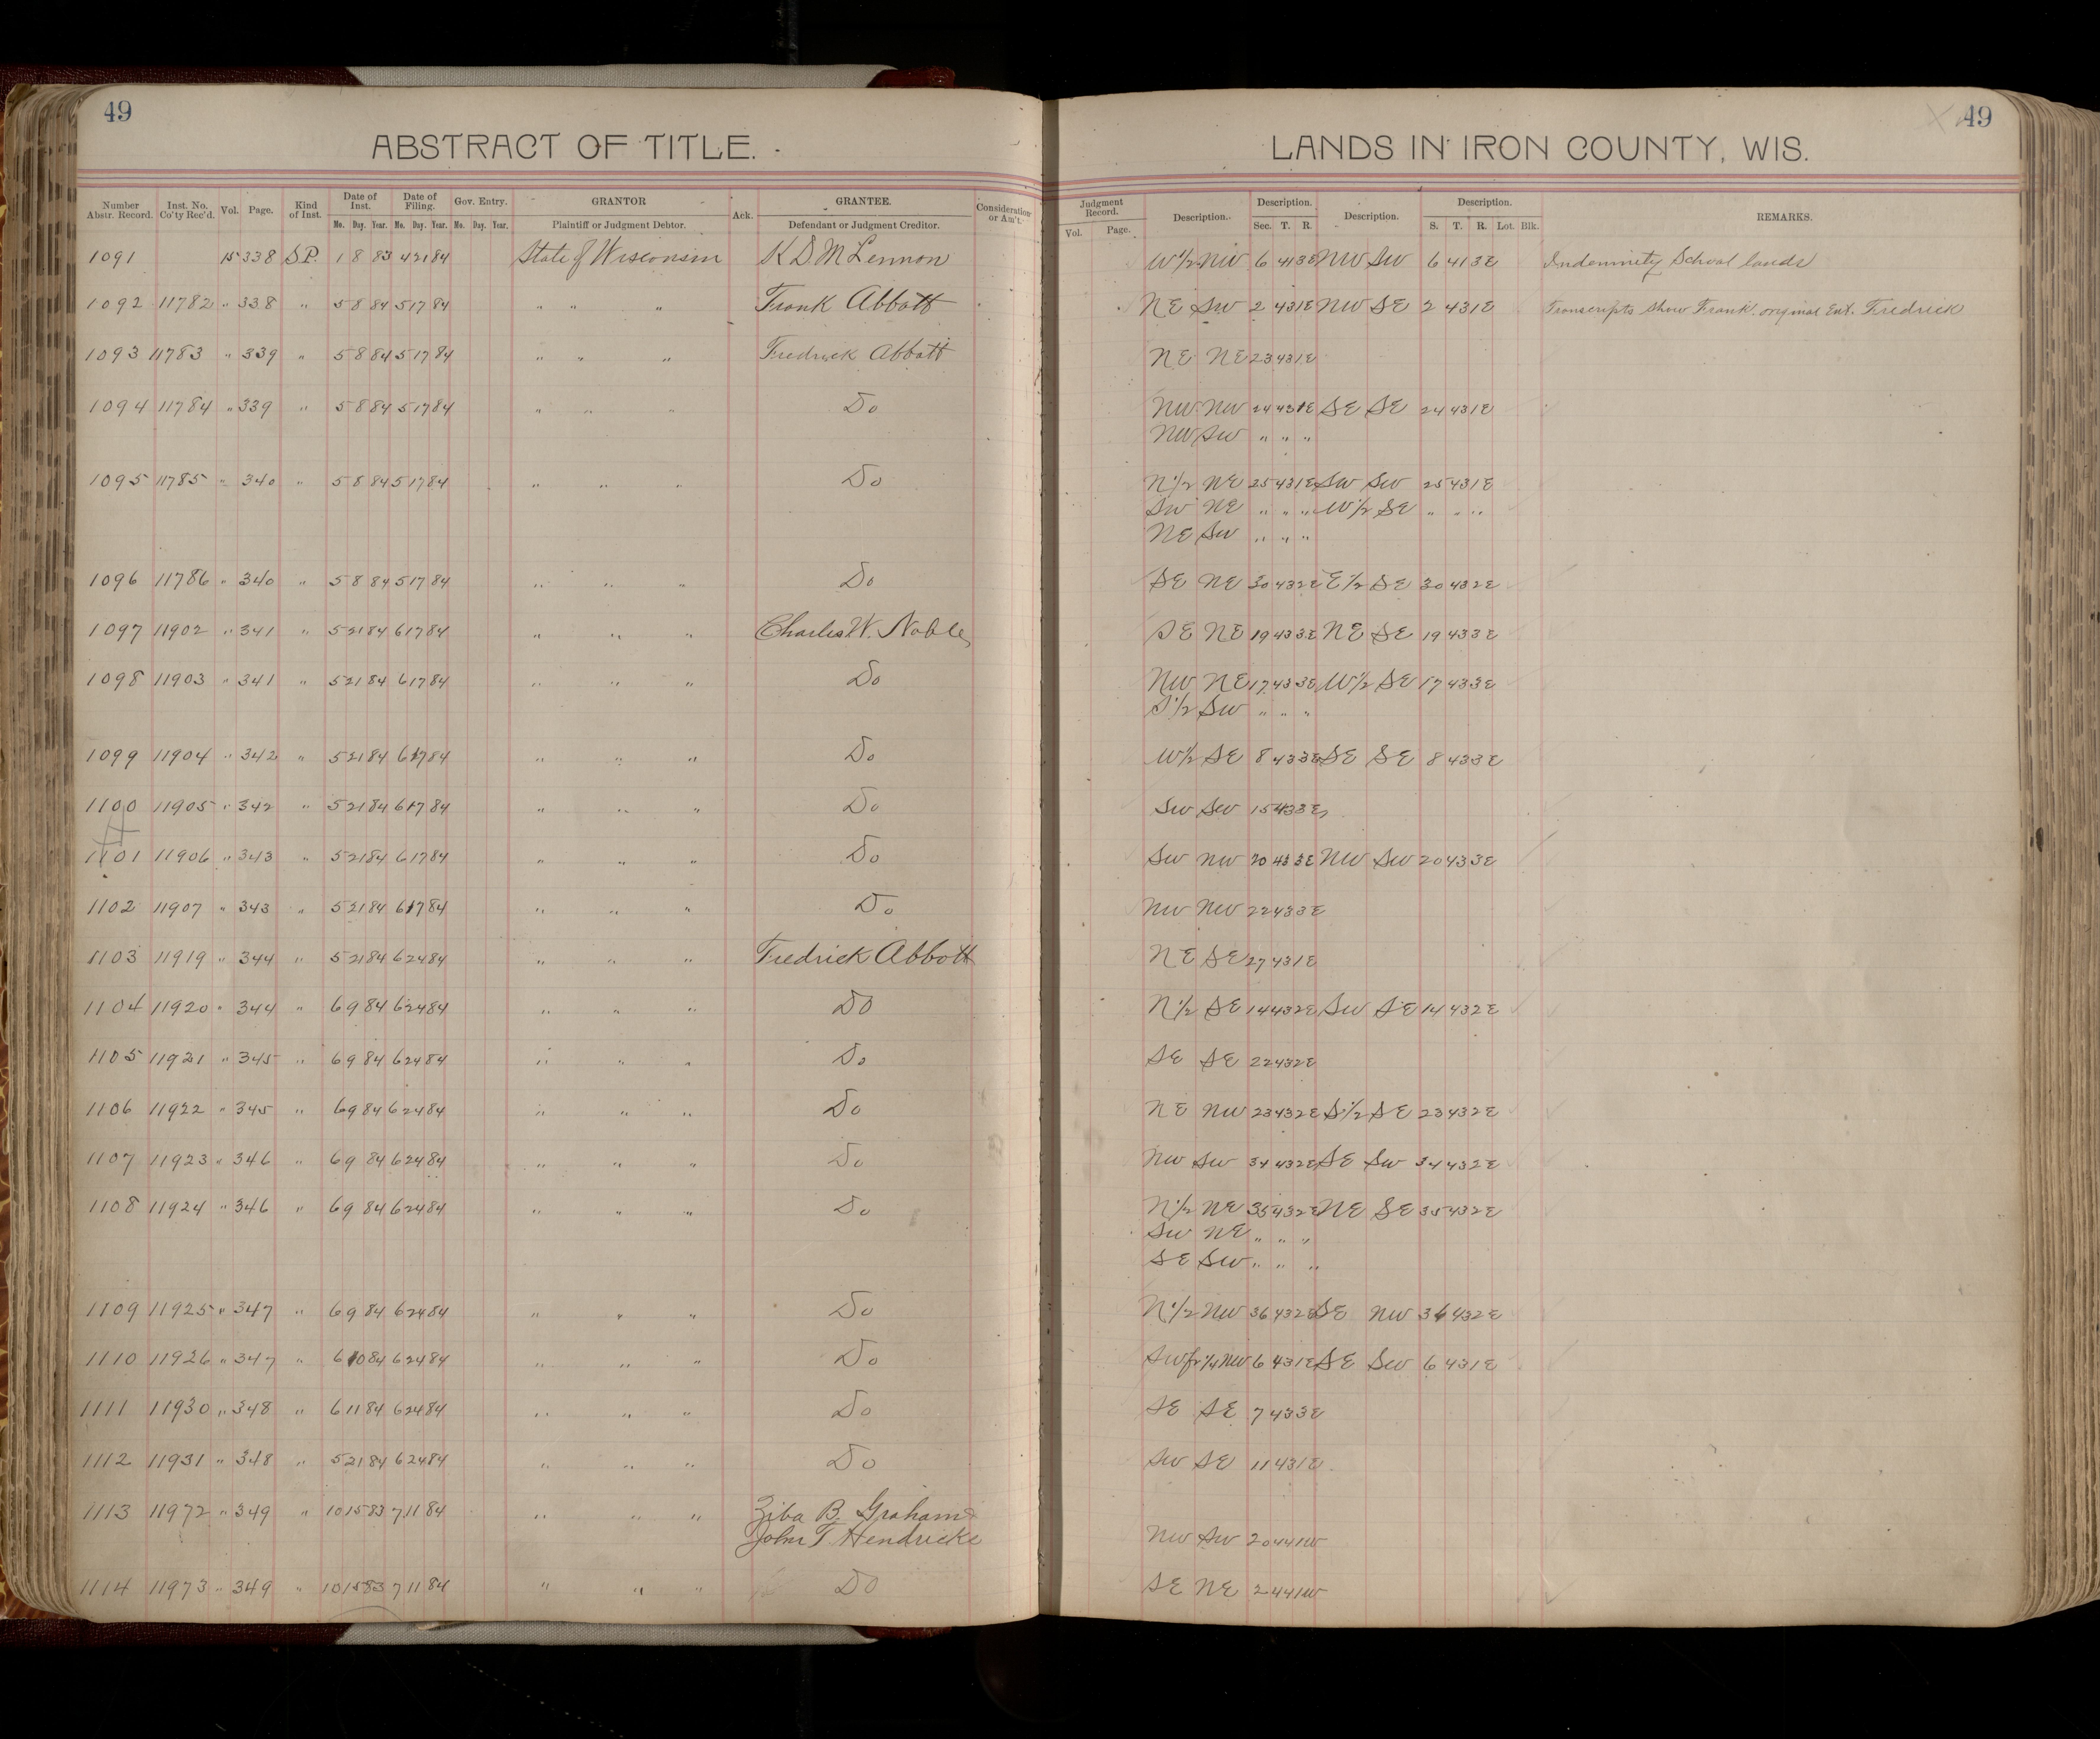 49
ABSTRACT OF TITLE.
Number Abstr. Record. Inst. No. Co'ty Rec'd. Vol. Page. Kind of Inst. Date of Inst. Mo. Day. Year. Date of Filing. Mo. Day. Year. Gov. Entry. Mo. Day. Year. GRANTOR Plaintiff or Judgment Debtor. Ack. GRANTEE. Defendant or Judgment Creditor. Consideration or Am't.
49
LANDS IN IRON COUNTY, WIS.
Judgment Record. Vol. Page. Description. Description. Sec. T. R. Description. Description. S. T. R. Lot. Blk. REMARKS.
1091 15 338 S.P. 1 8 83 4 21 84 State of Wisconsin K D McLennon W 1/2 NW 6 41 3E NW SW 6 41 3E Indemnity School lands
1092 11782 " 338 " 5 8 84 5 17 84 " " " Frank Abbott NE SW 2 43 1E NW SE 2 43 1E Transcripts show Frank. original Ent. Fredrick
1093 11783 " 339 " 5 8 84 5 17 84 " " " Fredrick Abbott NE NE 23 43 1E
1094 11784 " 339 " 5 8 84 5 17 84 " " " Do NW NW 24 43 1E SE SE 24 43 1E
NW SW " " "
1095 11785 " 340 " 5 8 84 5 17 84 " " " Do N 1/2 NE 25 43 1E SW SW 25 43 1E
SW NE " " " W 1/2 SE " " "
NE SW " " "
1096 11786 " 340 " 5 8 84 5 17 84 " " " Do SE NE 30 43 2E E 1/2 SE 30 43 2E
1097 11902 " 341 " 5 21 84 6 17 84 " " " Charles W. Nobles SE NE 19 43 3E NE SE 19 43 3E
1098 11903 " 341 " 5 21 84 6 17 84 " " " Do NW NE 17 43 3E W 1/2 SE 17 43 3E
S 1/2 SW " " "
1099 11904 " 342 " 5 21 84 6 17 84 " " " Do W 1/2 SE 8 43 3E SE SE 8 43 3E
1100 11905 " 342 " 5 21 84 6 17 84 " " " Do SW SW 15 43 3E
1101 11906 " 343 " 5 21 84 6 17 84 " " " Do SW NW 20 43 3E NW SW 20 43 3E
1102 11907 " 343 " 5 21 84 6 17 84 " " " Do NW NW 22 43 3E
1103 11919 " 344 " 5 21 84 6 24 84 " " " Fredrick Abbott NE SE 27 43 1E
1104 11920 " 344 " 6 9 84 6 24 84 " " " DO N 1/2 SE 14 43 2E SW SE 14 43 2E
1105 11921 " 345 " 6 9 84 6 24 84 " " " Do SE SE 22 43 2E
1106 11922 " 345 " 6 9 84 6 24 84 " " " Do NE NW 23 43 2E S 1/2 SE 23 43 2E
1107 11923 " 346 " 6 9 84 6 24 84 " " " Do NW SW 34 43 2E SE SW 34 43 2E
1108 11924 " 346 " 6 9 84 6 24 84 " " " Do N 1/2 NE 35 43 2E NE SE 35 43 2E
SW NE " " "
SE SW " " "
1109 11925 " 347 " 6 9 84 6 24 84 " " " Do N 1/2 NW 36 43 2E SE NW 36 43 2E
1110 11926 " 347 " 6 10 84 6 24 84 " " " Do SW fr 1/4 NW 6 43 1E SE SW 6 43 1E
1111 11930 " 348 " 6 11 84 6 24 84 " " " Do SE SE 7 43 3E
1112 11931 " 348 " 5 21 84 6 24 84 " " " Do SW SE 11 43 1E
1113 11972 " 349 " 10 15 83 7 11 84 " " " Ziba B. Graham &
John T. Hendricks NW SW 20 44 1W
1114 11973 " 349 " 10 15 83 7 11 84 " " " DO SE NE 2 44 1W